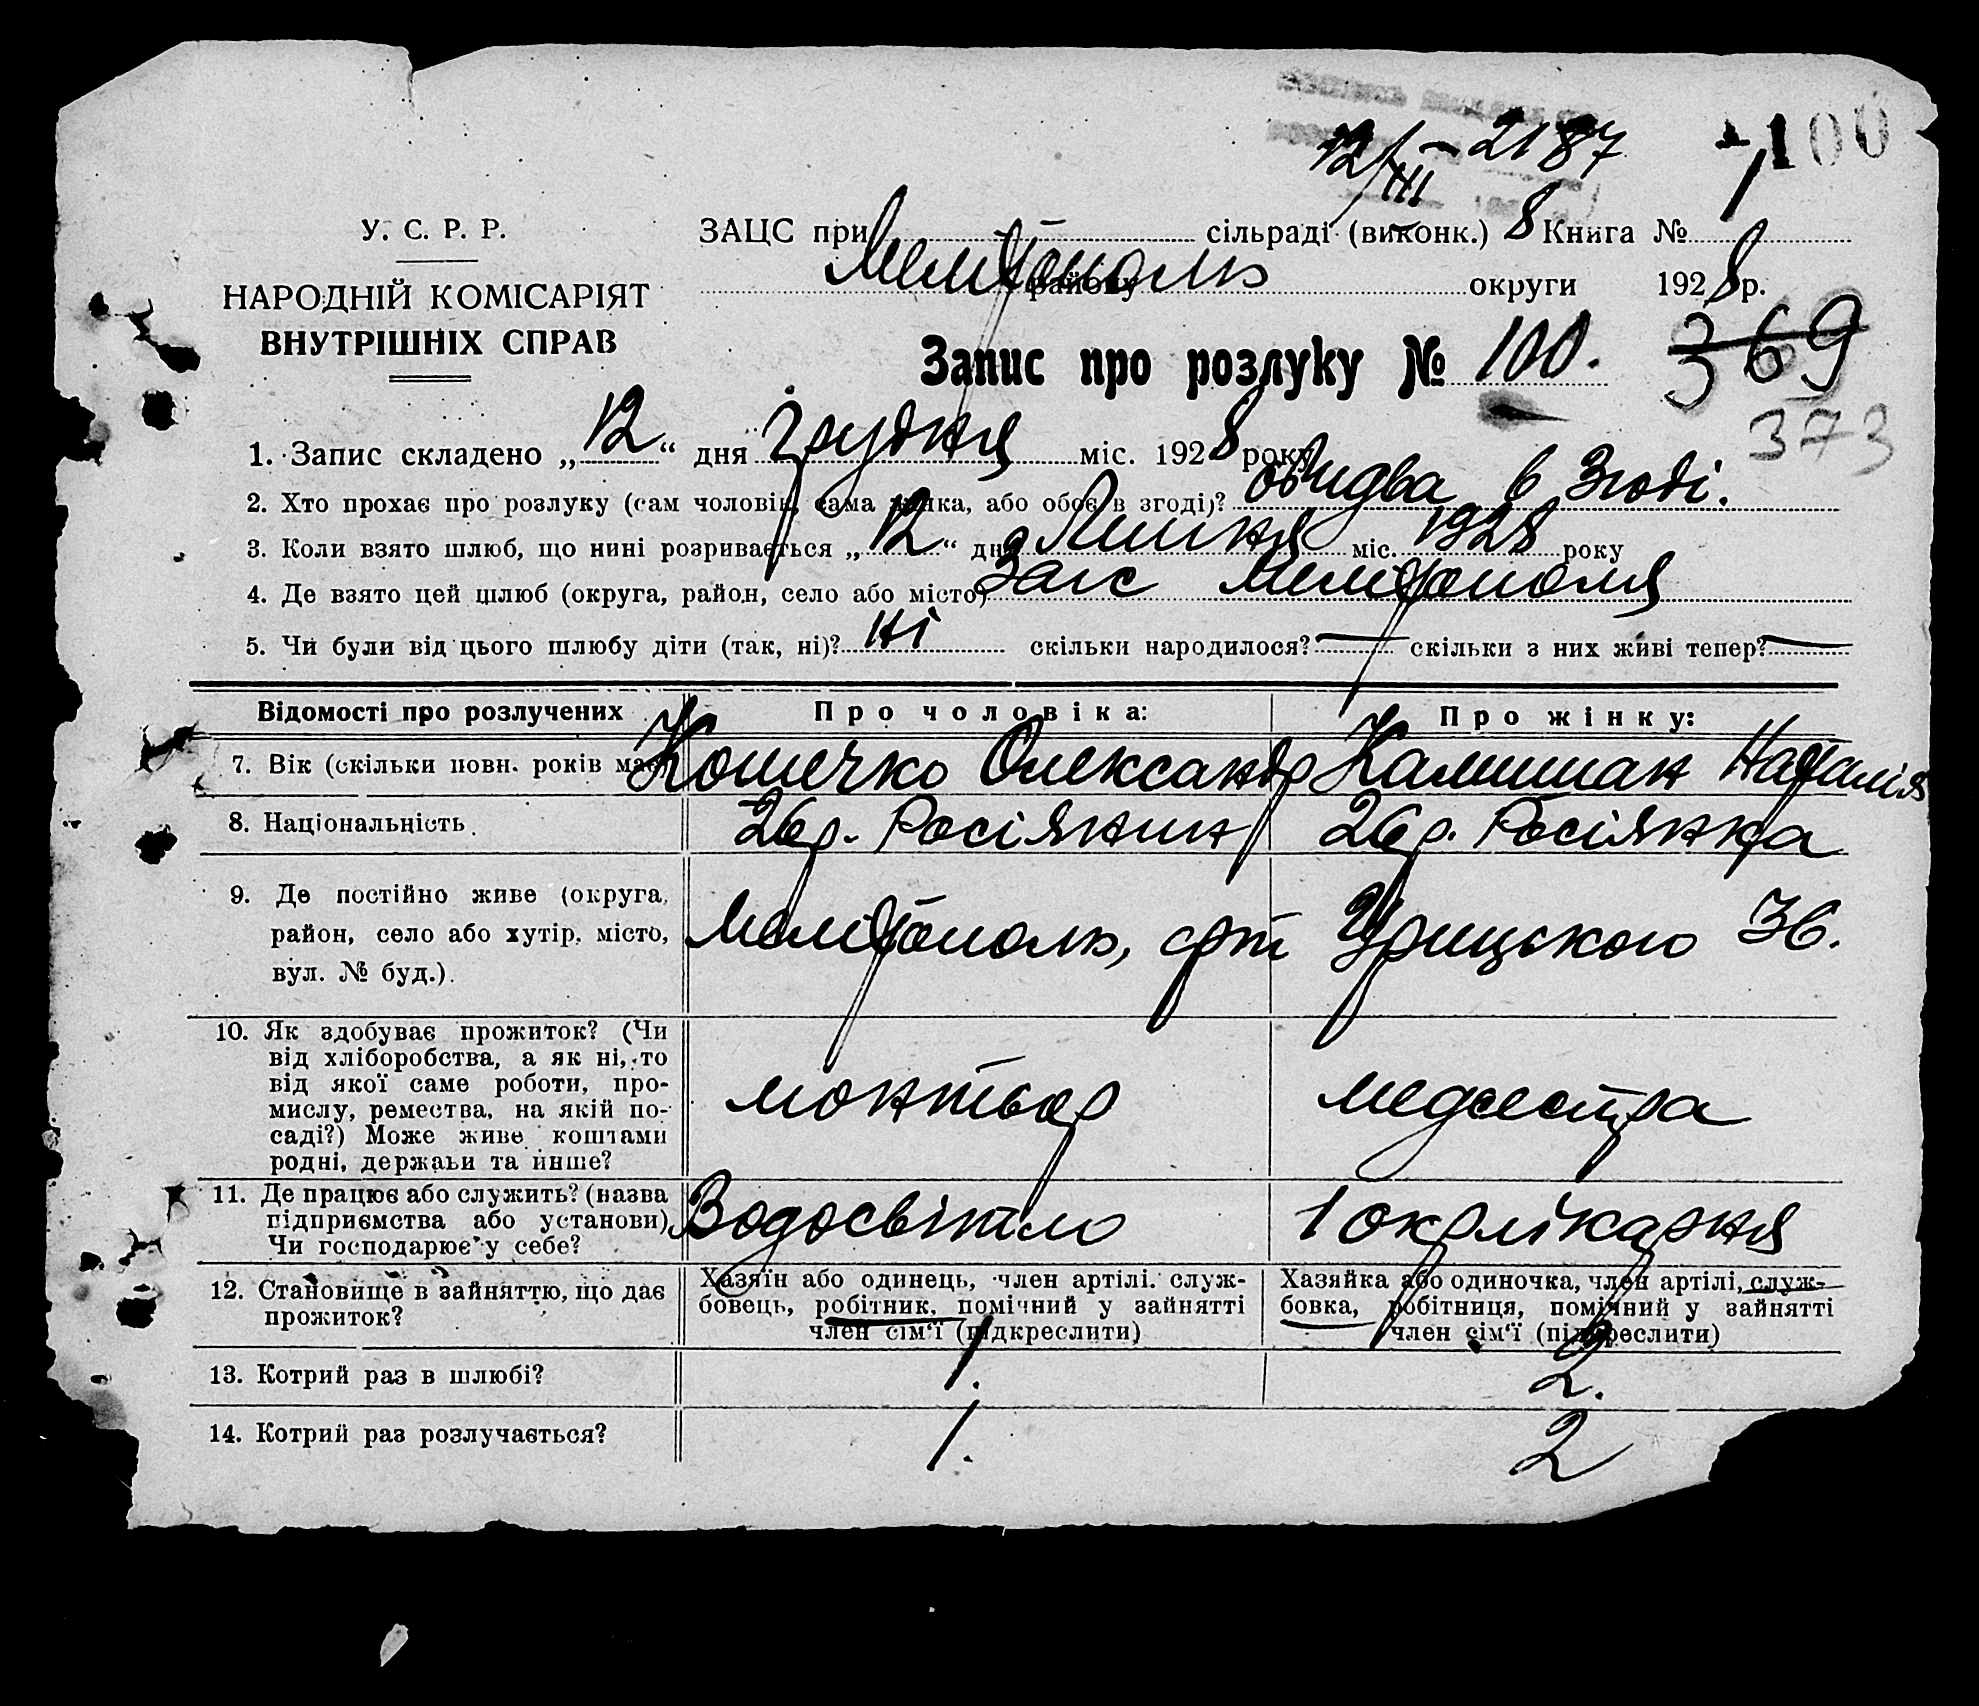 12/XII – 2187
100
1
У. С. Р. Р.
НАРОДНІЙ КОМІСАРІЯТ
ВНУТРІШНІХ СПРАВ
ЗАЦС при Мелітополь сільраді (виконк.) 8 Книга №
району округи 1928 р.
Запис про розлуку № 100. 369
373
1. Запис складено „12“ дня грудня міс. 1928 року
2. Хто прохає про розлуку (сам чоловік, сама жінка, або обоє в згоді)? обидва в Згоді.
3. Коли взято шлюб, що нині розривається „12“ дня Липня міс. 1928 року
4. Де взято цей шлюб (округа, район, село або місто) Загс Мелітополя
5. Чи були від цього шлюбу діти (так, ні)? ні скільки народилося? — скільки з них живі тепер? —
Відомості про розлучених
Про чоловіка:
Про жінку:
Кошечко Олександр
Калишман Наталія
7. Вік (скільки повн. років має)
8. Національність
26 р. Росіянин
26 р. Росіянка
9. Де постійно живе (округа,
район, село або хутір, місто,
вул. № буд.).
Мелітополь, Урицького 36.
10. Як здобуває прожиток? (Чи
від хліборобства, а як ні, то
від якої саме роботи, про-
мислу, ремества, на якій по-
саді?) Може живе коштами
родні, держави та инше?
монтьор
медсестра
11. Де працює або служить? (назва
підприємства або установи)
Чи господарює у себе?
Водосвітло
1 окрлікарня
12. Становище в зайняттю, що дає
прожиток?
Хазяїн або одинець, член артілі, служ-
бовець, робітник, помічний у зайнятті
член сім'ї (підкреслити)
Хазяйка або одиночка, член артілі, служ-
бовка, робітниця, помічний у зайнятті
член сім'ї (підкреслити)
13. Котрий раз в шлюбі?
1.
2.
14. Котрий раз розлучається?
1.
2